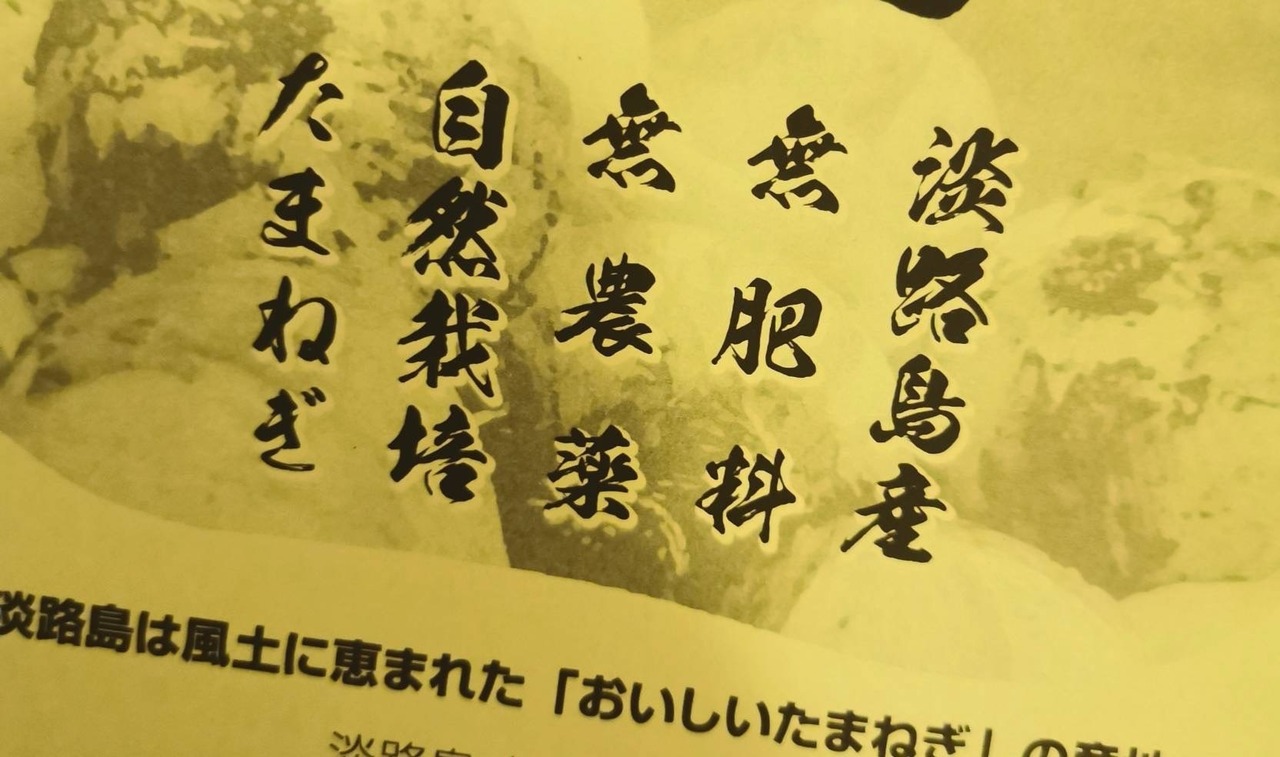 淡路島産
無肥料
無農薬
自然栽培
たまねぎ
淡路島は風土に恵まれた「おいしいたまねぎ」の産地
淡路島